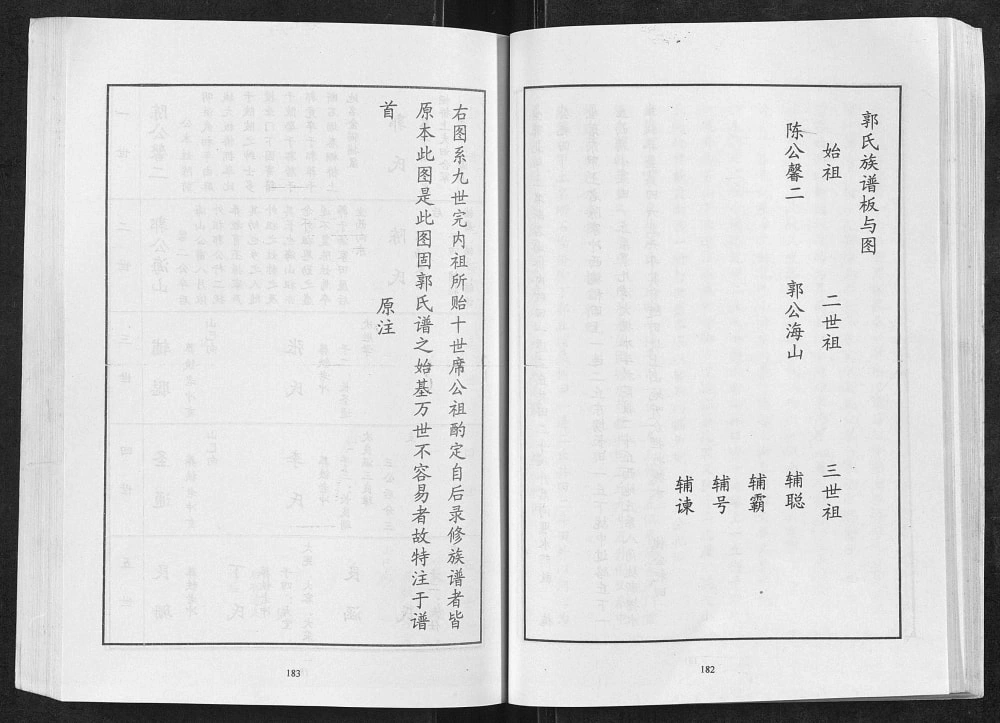 郭氏族谱板与图
始祖 二世祖 三世祖
陈公馨二 郭公海山 辅聪
辅霸
辅号
辅谏
182
右图系九世完内祖所贻十世席公祖酌定自后录修族谱者皆
原本此图是此图固郭氏谱之始基万世不容易者故特注于谱
首 原注
183